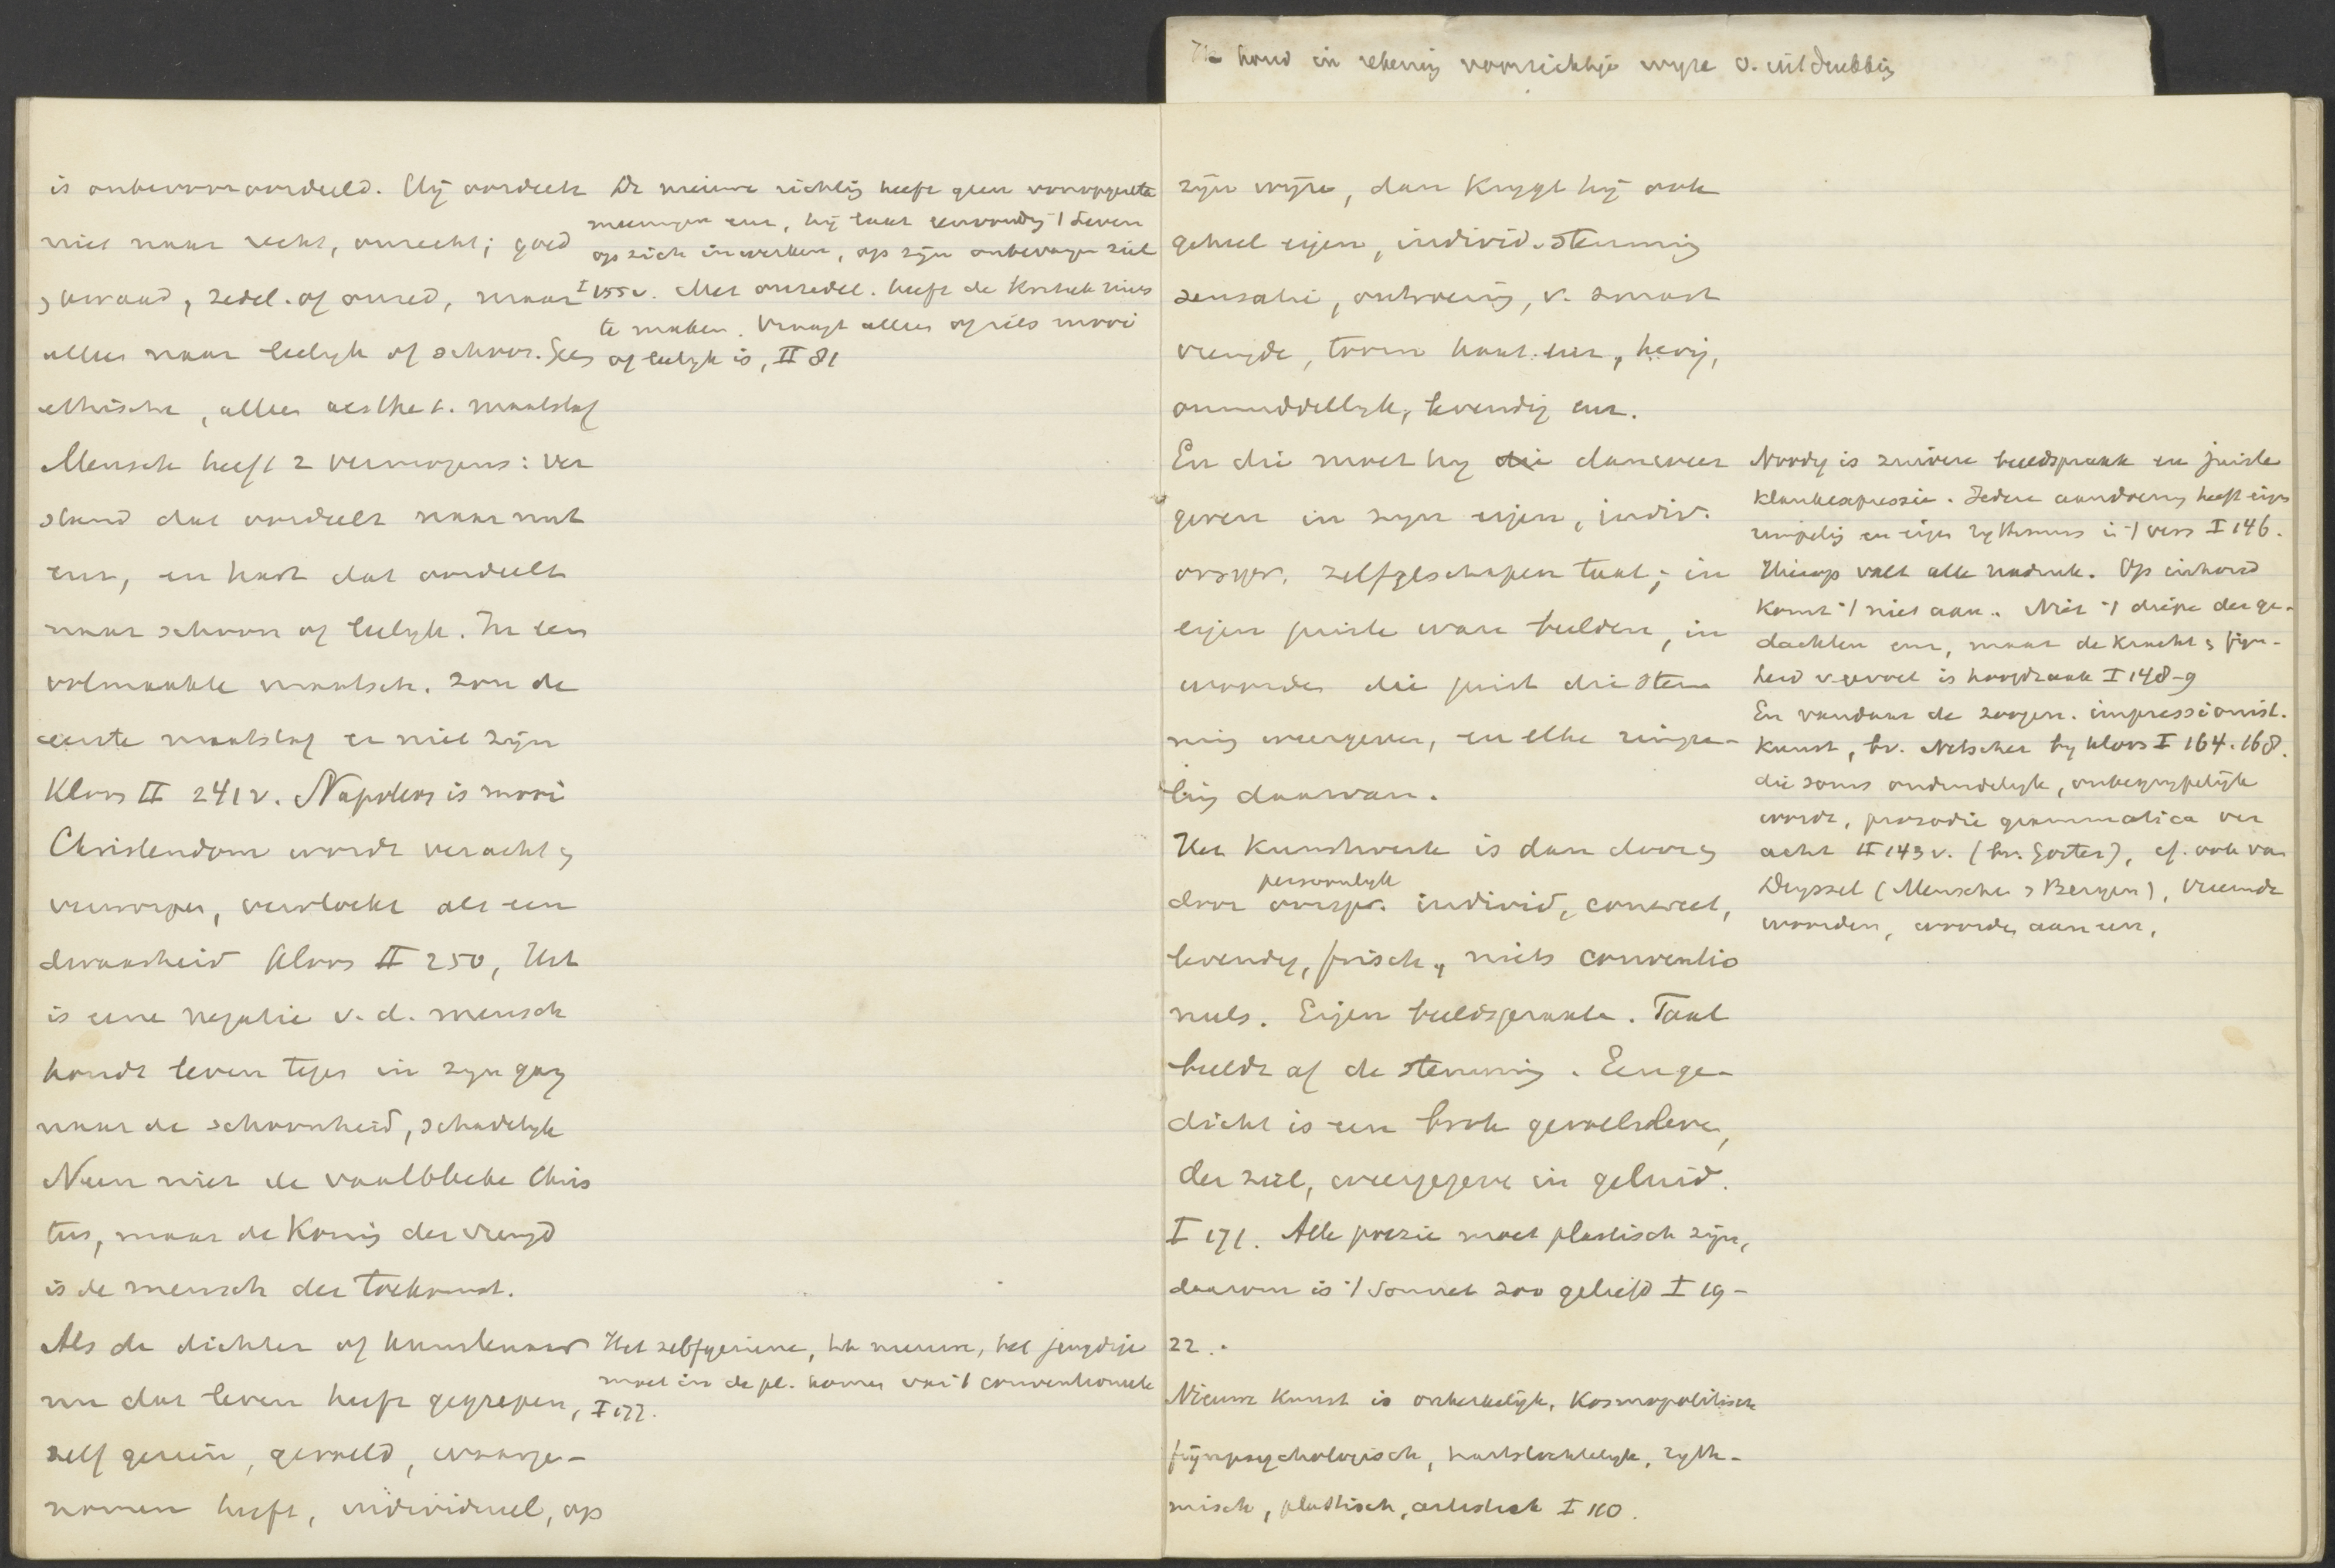 Ik houd in rekening voorzichtige wyze v. uitdrukking
is onbevooroordeeld. Hij oordeelt
niet naar recht, onrecht; goed
, kwaad, zedel. of onzed, maar
alles naar leelyk of schoon. Geen
ethische, alleen aesthet. maatstaf
Mensch heeft 2 vermogens: ver
stand dat oordeelt naar nut
enz, en hart dat oordeelt
naar schoon of leelyk. In een
volmaakte maatsch. zou de
eerste maatstaf er niet zijn
Kloos II 241v. Napoleon is mooi
Christendom wordt veracht,
verworpen, vervloekt als een
dwaasheid Kloos II 250, Het
is eene negatie v.d. mensch
houdt leven tegen in zyn gang
naar de schoonheid, schadelyk
Neen niet de vaalbleeke Chris
tus, maar de Koning der vreugd
is de mensch der toekomst.
Als de dichter of kunstenaar
nu dat leven heeft gegrepen,
zelf gezien, gevoeld, waarge-
nomen heeft, individueel, op
De nieuwe richting heeft geen vooropgezette
meeningen enz, hij laat eenvoudig 't Leven
op zich inwerken, op zijn onbevangen ziel
I 155v. Met onzedel. heeft de kritiek niets
te maken. Vraagt alleen of iets mooi
of leelyk is, II 81
Het zelfgeziene, het nieuwe, het jeugdige
moet in de pl. komen van 't conventioneele
I 177.
zijn wijze, dan krygt hij ook
geheel eigen, individ. stemming
sensatie, ontroering, v. smart
vreugde, toorn haat enz, hevig,
onmiddellyk, levendig enz.
En die moet hy die dan weer
geven in zyn eigen, indiv.
oorspr. zelfgeschapen taal; in
eigen juiste ware beelden, in
woorden die juist die stem
ming weergeven, en elke rimpe-
ling daarvan.
Het Kunstwerk is dan door,
persoonlyk
door oorspr. individ, concreet,
levendig, frisch, niets conventio
neels. Eigen beeldspraak. Taal
beeldt af de stemming. Een ge-
dicht is een brok gevoelsleven,
der ziel, weergegeven in geluid.
I 171. Alle poezie moet plastisch zijn,
daarom is 't Sonnet zoo geliefd I 19-
22.
Nieuwe Kunst is onkerkelijk, Kosmopolitisch
fijnpsychologisch, hartstochtelyk, ryth-
misch, plastisch, artistiek I 110.
Noodig is zuivere beeldspraak en juiste
Klankexpressie. Iedere aandoening heeft eigen
rimpeling en eigen rythmus in 't vers I 146.
Hierop valt alle nadruk. Op inhoud
komt 't niet aan. Niet 't diepe der ge-
dachten enz, maar de kracht, fijn-
heid v. gevoel is hoofdzaak I 148-9
En vandaar de zoogen. impressionist.
Kunst, bv. Netscher by Kloos I 164. 168.
die soms onduidelyk, onbegrypelijk
wordt, prosodie grammatica ver
acht II 143v. (bv. Gorter), cf. ook van
Deyssel (Menschen & Bergen), vreemde
woorden, woorden aaneen,